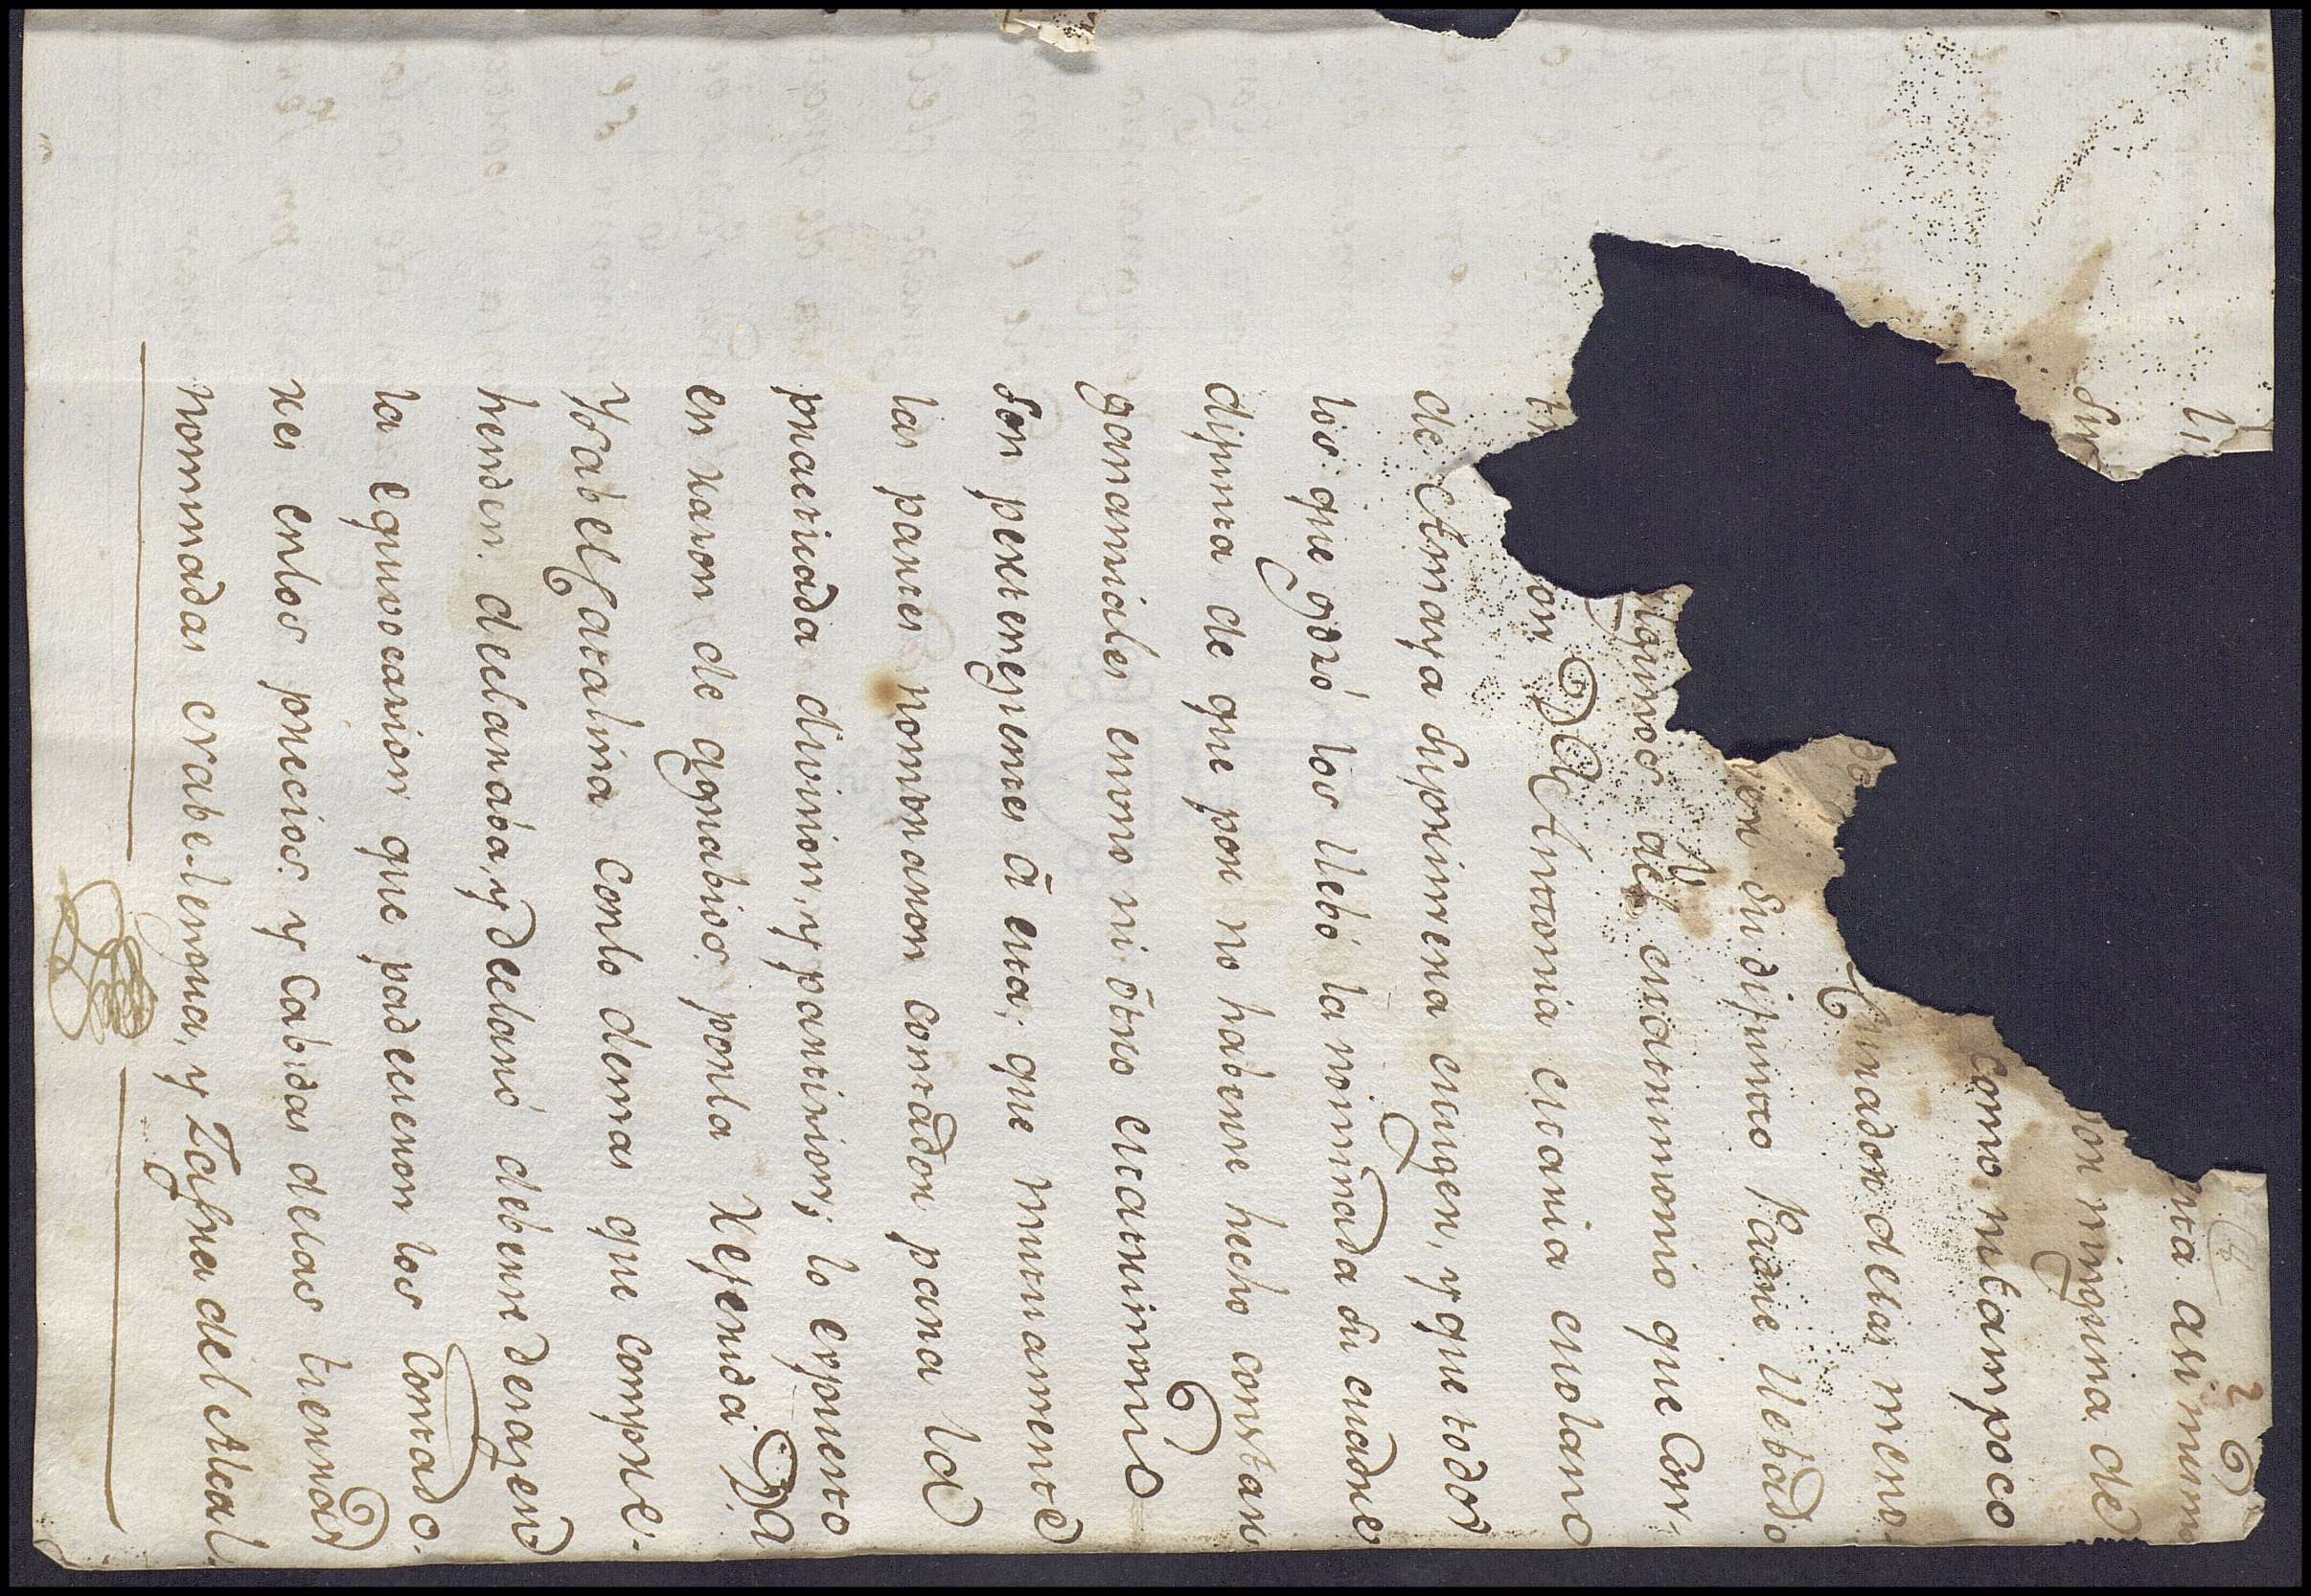 2
li nta asi mism
su on ninguna de
como ni tampoco
Curador de las meno-
en su difunto Padre llebado
algunos al matrimonio que Con-
tr on Da Antonia Maria Molano
de Amaya su primera muger, y que todos
los que gozó los llebó la nominada su madre
difunta de que por no haberse hecho constar
gananciales en uno ni otro matrimonio
son pertenecientes á esta, que mutuamente
las partes nombraron contador para la
practicada division, y particion; lo expuesto
en razon de agrabios por la referida Da
Ysabel Catalina con lo demas que compre-
henden declaraba, y declaró deberse deshazer
la equivocacion que padecieron los Contado-
res en los precios y Cabidas de las tierras
nominadas crabe-lengua, y Zafra del Alcal-